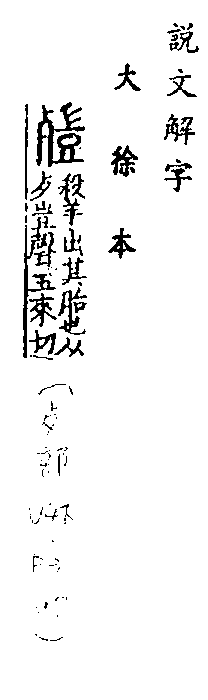 說文解字
大徐本
殺羊出其胎也从
歺豈聲五來切